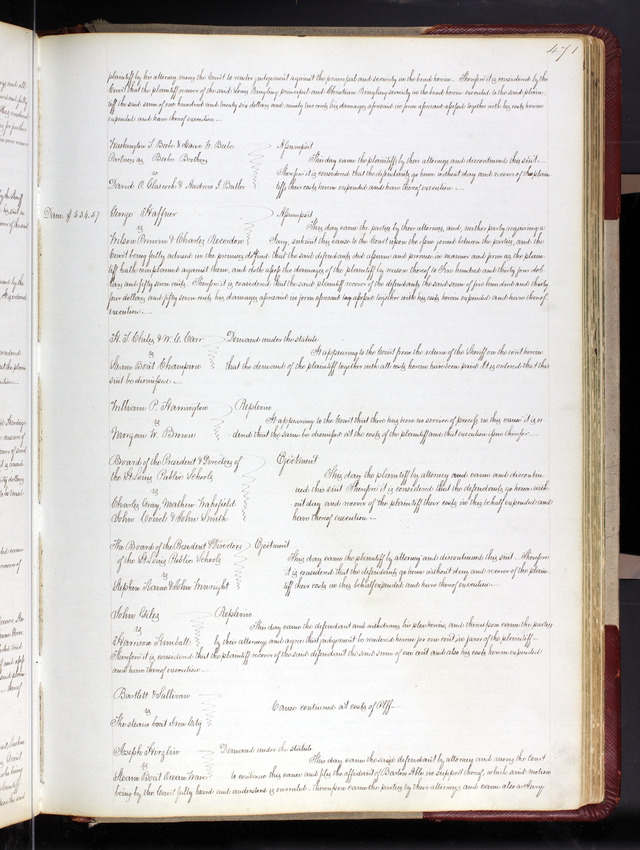 471
plaintiff by his attorney moves the Court to render judgement against the principal and security in the bond herein. Therefore it is considered by the
Court that the plaintiff recover of the said Louis principal and Christian security in the bond herein executed to the said plain-
tiff the said sum of one hundred and twenty six dollars and ninety two cents his damages aforesaid in form aforesaid assessed together with his costs herein
expended and have thereof execution.
Washington S. Beebe & W. Beebe
Partners as Beebe Brothers
vs
David O. Glascock & Andrew J. Butler
Assumpsit
This day came the plaintiffs by their attorney and discontinued this suit.
Therefore it is considered that the defendants go hence without day and recover of the plain-
tiffs their costs herein expended and have thereof execution.
Dam. $534.57
George Haffner
vs
Wilson Primm & Charles
Assumpsit
This day came the parties by their attorneys, and, neither party requiring a
Jury, submit this cause to the Court upon the issue joined between the parties, and the
Court being fully advised in the premises doth find that the said defendants did assume and promise in manner and form as the plain-
tiff hath complained against them, and doth assess the damages of the plaintiff by reason thereof to Five hundred and thirty four dol-
lars and fifty seven cents. Therefore it is considered that the said plaintiff recover of the defendants the said sum of five hundred and thirty
four dollars and fifty seven cents his damages aforesaid in form aforesaid assessed together with his costs herein expended and have thereof
execution.
H. S. & W. C. Carr
vs
Steam Boat Champion
Demand under the statute
It appearing to the Court from the return of the Sheriff on the writ herein
that the demand of the plaintiff together with all costs herein have been paid. It is ordered that this
suit be dismissed.
William P. Harrington
vs
Morgan W. Brown
Replevin
It appearing to the Court that there has been no service of process in this cause it is or-
dered that the same be dismissed at the costs of the plaintiff and that execution issue therefor.
Board of the President & Directors of
the St. Louis Public Schools
vs
Charles Gray, Mathew Wakefield
John & John Smith
Ejectment
This day the plaintiff by attorney and came and discontin-
ued this suit. Therefore it is considered that the defendants go hence with-
out day and recover of the plaintiff their costs in this behalf expended and
have thereof execution.
The Board of the President & Directors
of the St. Louis Public Schools
vs
Stephen & John
Ejectment
This day came the plaintiff by attorney and discontinued this suit. Therefore
it is considered that the defendants go hence without day and recover of the plain-
tiff their costs in this behalf expended and have thereof execution.
John Giles
vs
Harrison Kimball
Replevin
This day came the defendant and withdraws his plea herein, and thereupon came the parties
by their attorneys and agree that judgement be rendered herein for one cent in favor of the plaintiff.
Therefore it is considered that the plaintiff recover of the said defendant the said sum of one cent and also his costs herein expended
and have thereof execution.
Bartlett & Sullivan
vs
The steam boat Iron City
Cause continued at costs of Plff
Joseph
vs
Steam Boat Ocean Wave
Demand under the statute
This day came the said defendant by attorney and moves the Court
to continue this cause and files the affidavit of Barton Able in support thereof, which said motion
being by the Court fully heard and understood is overruled. Thereupon came the parties by their attorneys and came also a Jury